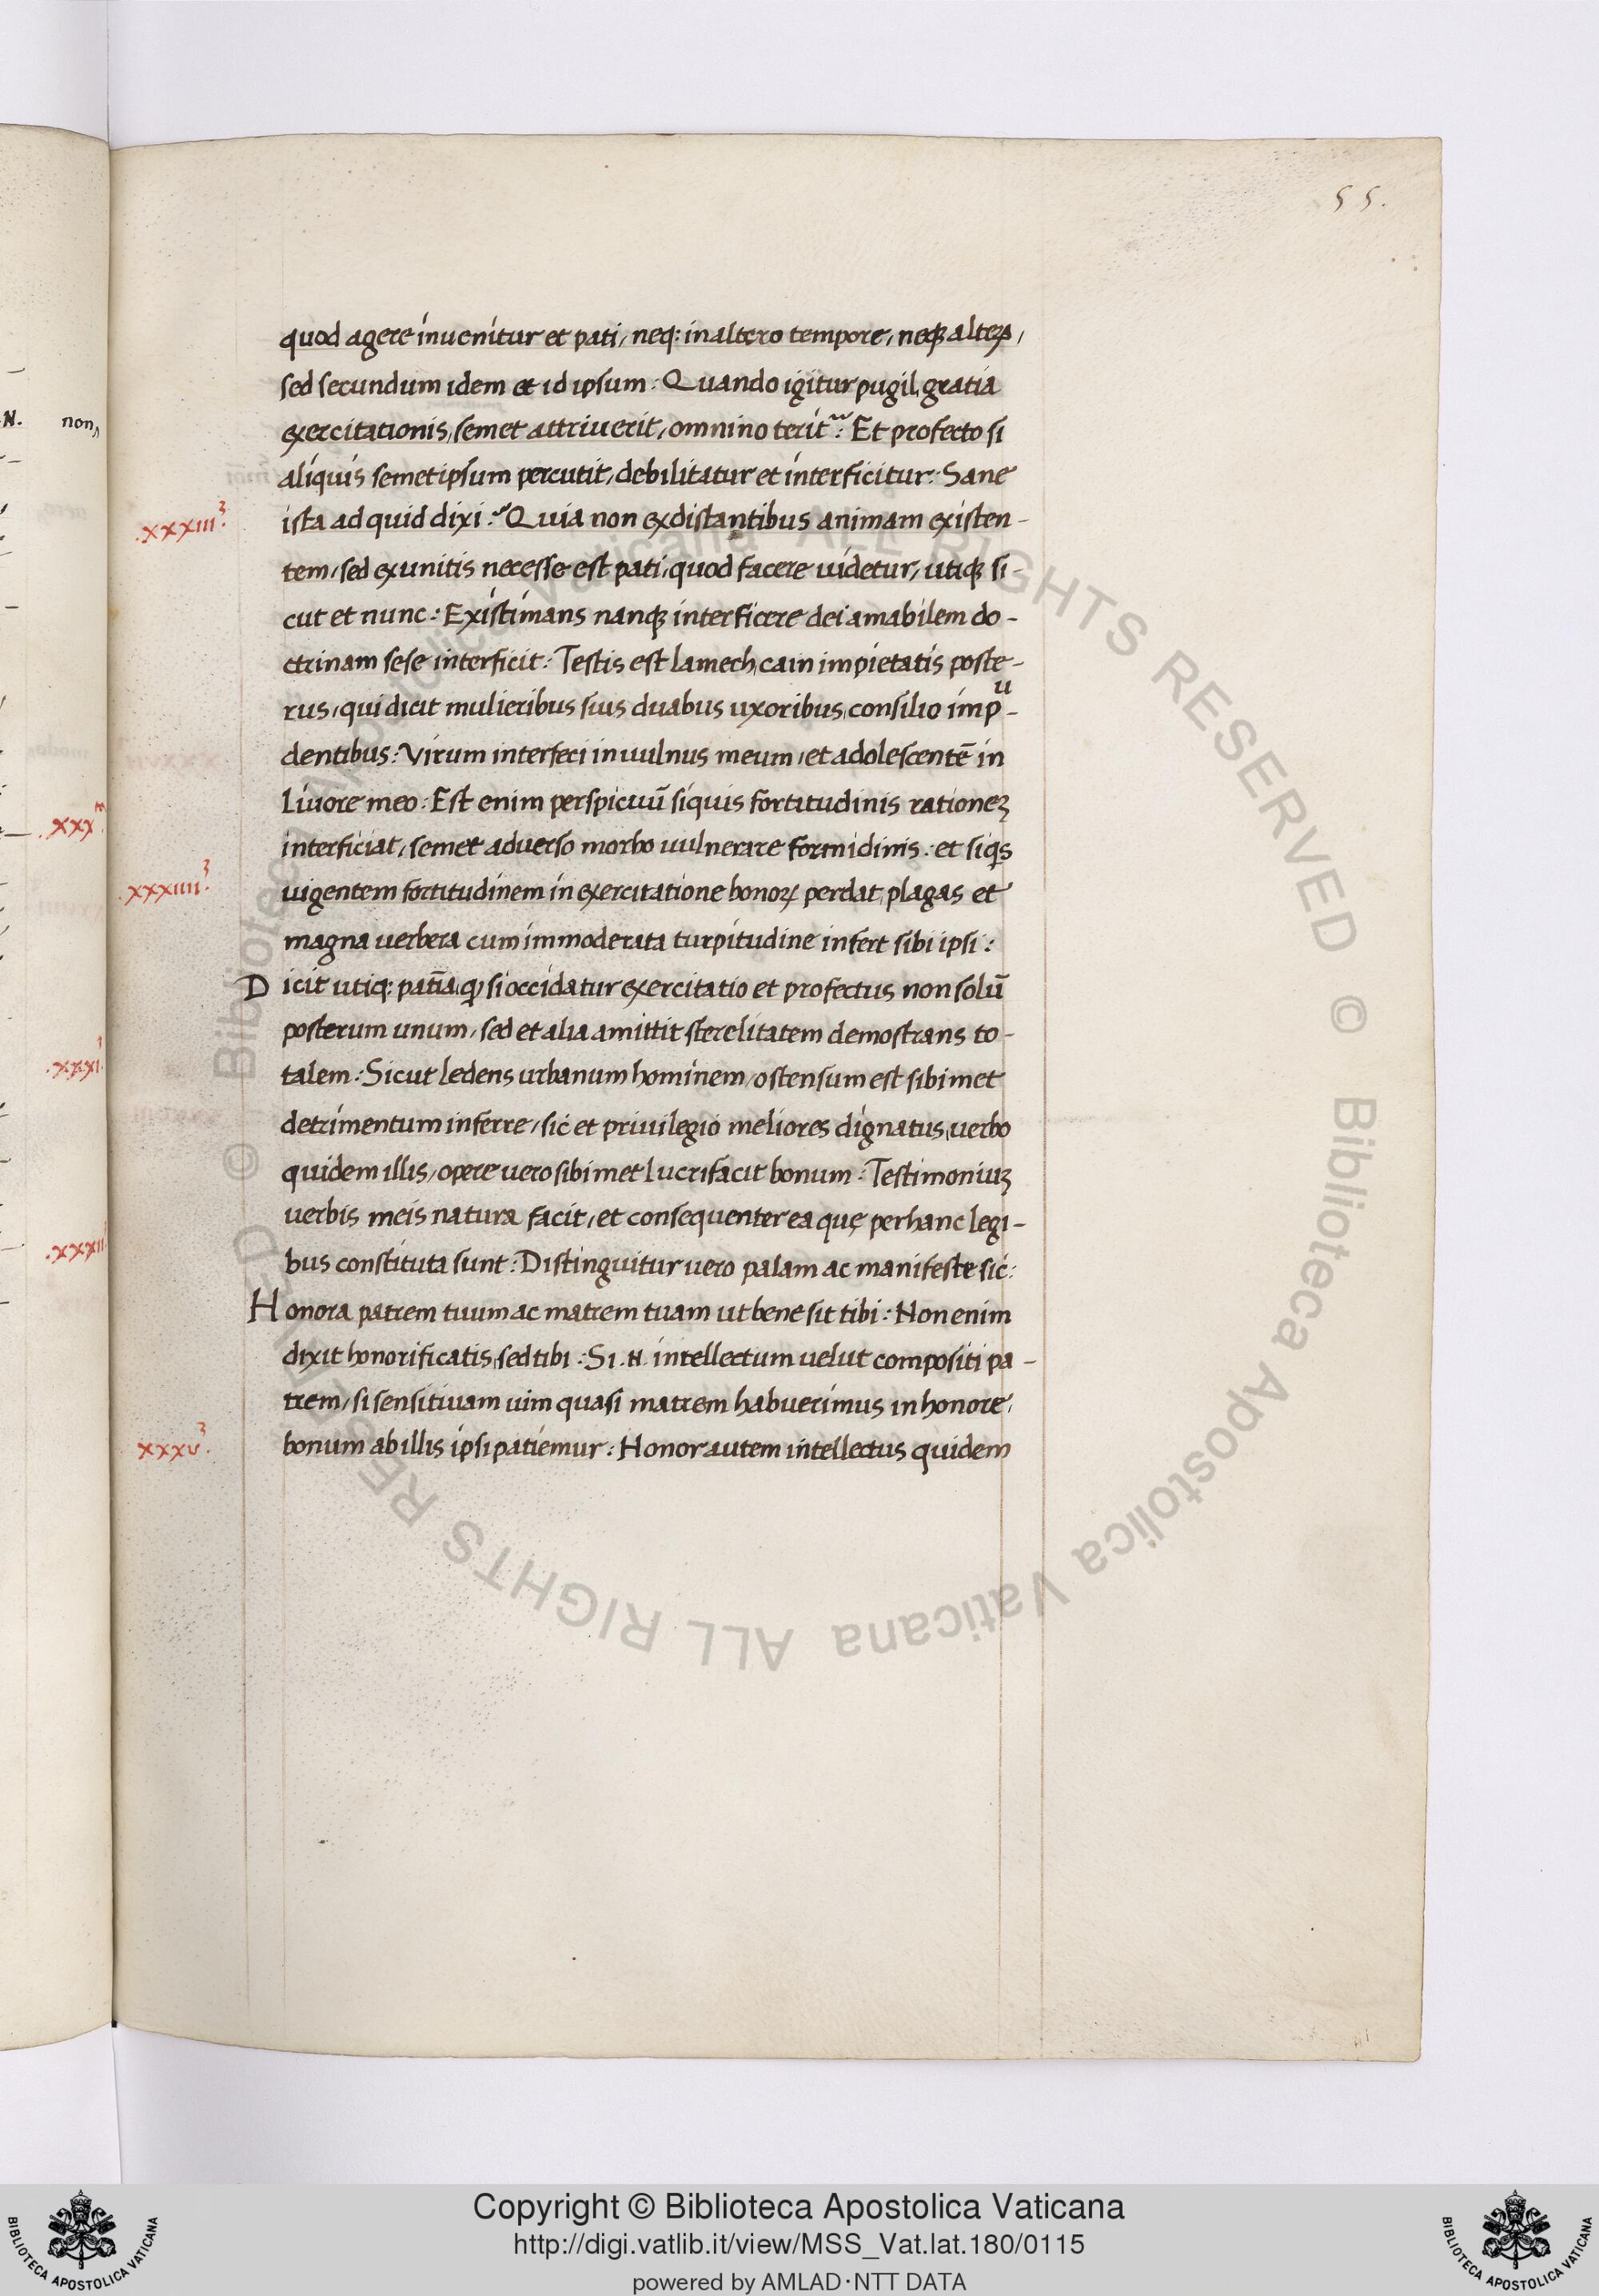 55.
quod agere inuenitur et pati, neq: in altero tempore, neqꝫ alterꝫ,
sed secundum idem et id ipsum: Quando igitur pugil, gratia
exercitationis, semet attriuerit, omnino terit᷑: Et profecto si
aliquis semetipsum percutit, debilitatur et interficitur: Sane
.xxxiii.³ ista ad quid dixi? Quia non ex distantibus animam existen-
tem, sed ex unitis necesse est pati, quod facere uidetur, utiqꝫ si-
cut et nunc: Existimans nanqꝫ interficere dei amabilem do-
ctrinam sese interficit: Testis est lamech, cain impietatis poste-
rus, qui dicit mulieribus suis duabus uxoribus, consilio impu-
dentibus: Virum interfeci in uulnus meum, et adolescentē in
Liuore meo: Est enim perspicuū siquis fortitudinis rationeꝫ
interficiat, semet aduerso morbo uulnerare formidinis: et siqꝭs
.xxxiiii.³ uigentem fortitudinem in exercitatione bonoꝝ perdat, plagas et
magna uerbera cum immoderata turpitudine infert sibi ipsi:
Dicit utiq: patiā, ꝙ si occidatur exercitatio et profectus non solū
posterum unum, sed et alia amittit sterelitatem demostrans to-
talem: Sicut ledens urbanum hominem, ostensum est sibimet
detrimentum inferre, sic et priuilegio meliores dignatus, uerbo
quidem illis, opere uero sibimet lucrifacit bonum: Testimoniuꝫ
uerbis meis natura facit, et consequenter ea quę per hanc legi-
bus constituta sunt: Distinguitur uero palam ac manifeste sic:
Honora patrem tuum ac matrem tuam ut bene sit tibi: Non enim
dixit honorificatis, sed tibi: Si .N. intellectum uelut compositi pa-
trem, si sensitiuam uim quasi matrem habuerimus in honore,
.xxxv.³ bonum ab illis ipsi patiemur: Honor autem intellectus quidem
N. non
.xxx.
.xxxi.
.xxxii.
© Biblioteca Apostolica Vaticana ALL RIGHTS RESERVED © Biblioteca Apostolica Vaticana ALL RIGHTS RESERVED
Copyright © Biblioteca Apostolica Vaticana
http://digi.vatlib.it/view/MSS_Vat.lat.180/0115
powered by AMLAD·NTT DATA
BIBLIOTECA APOSTOLICA VATICANA
BIBLIOTECA APOSTOLICA VATICANA